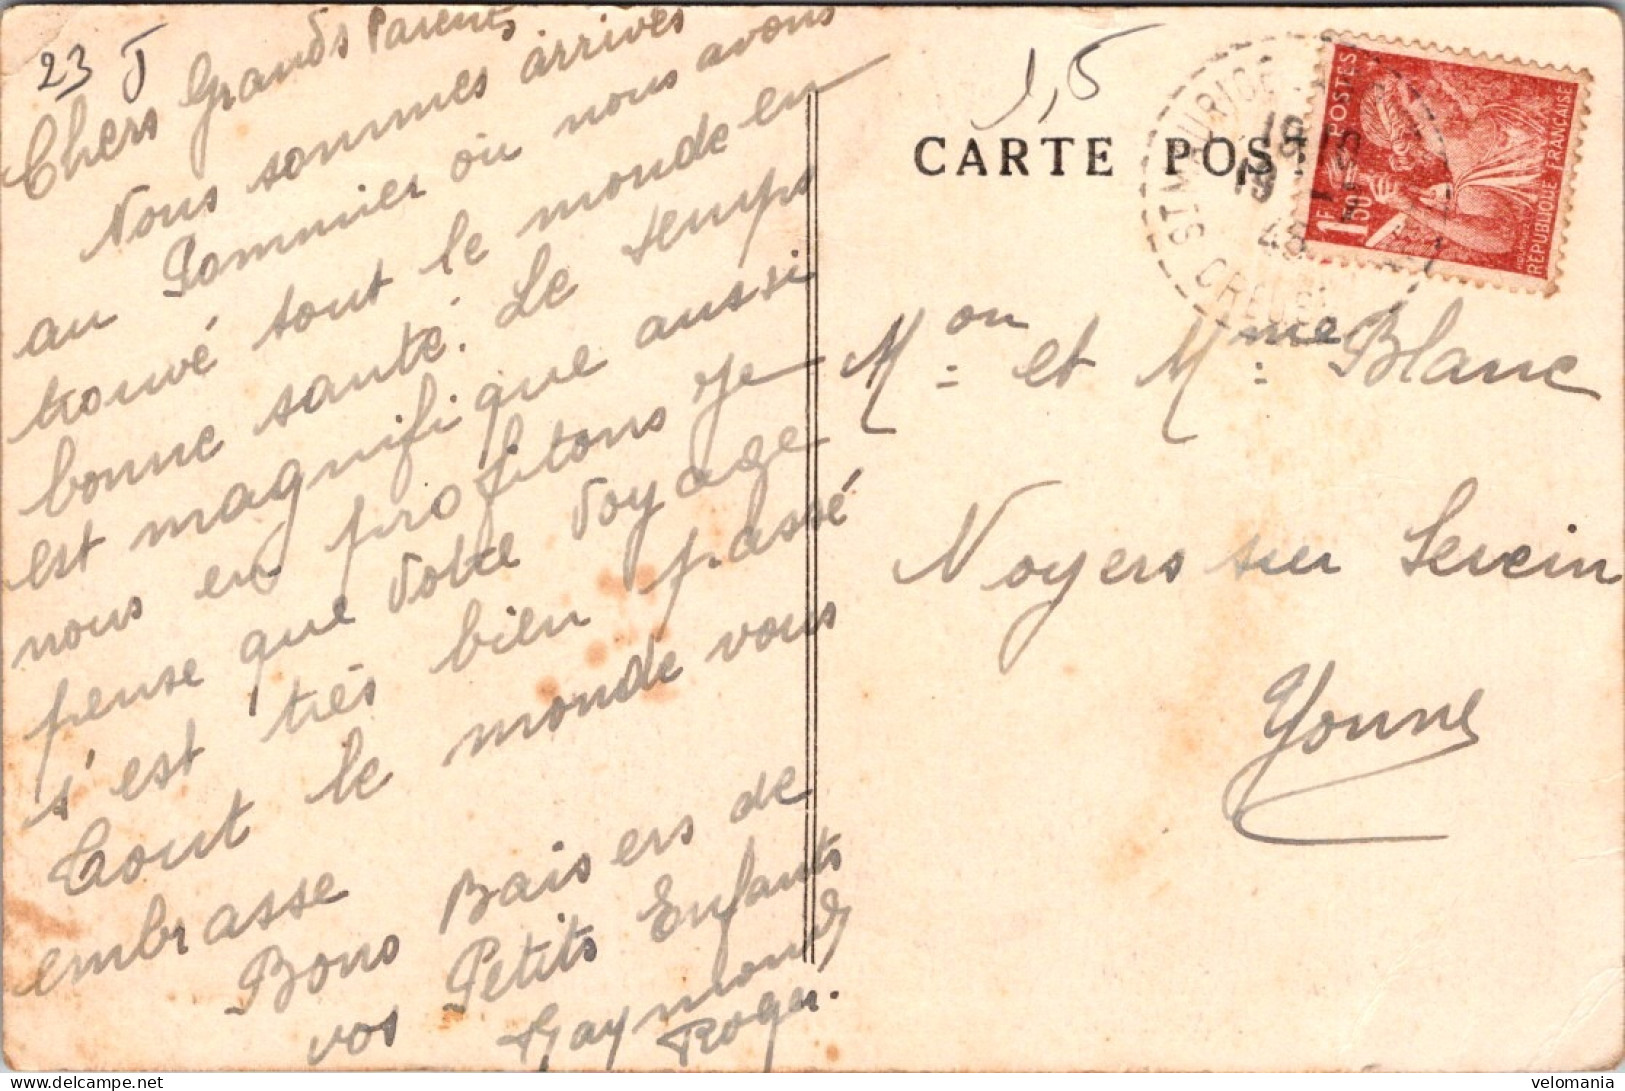 23 J
Chers Grands Parents
Nous sommes arrivés
au Pommier où nous avons
trouvé tout le monde en
bonne santé. Le temps
est magnifique aussi
nous en profitons je
pense que votre voyage
s'est très bien passé
Tout le monde vous
embrasse
Bons Baisers de
vos Petits Enfants
Raymonde
Roger.
1,5
CARTE POST
ST MAURICE
CREUSE
POSTES
1F50
REPUBLIQUE FRANÇAISE
Mon et Mme Blanc
Noyers sur Serein
Yonne
velomania